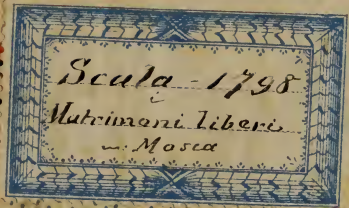 Scala - 1798
i
Matrimoni liberi
m. Mosca